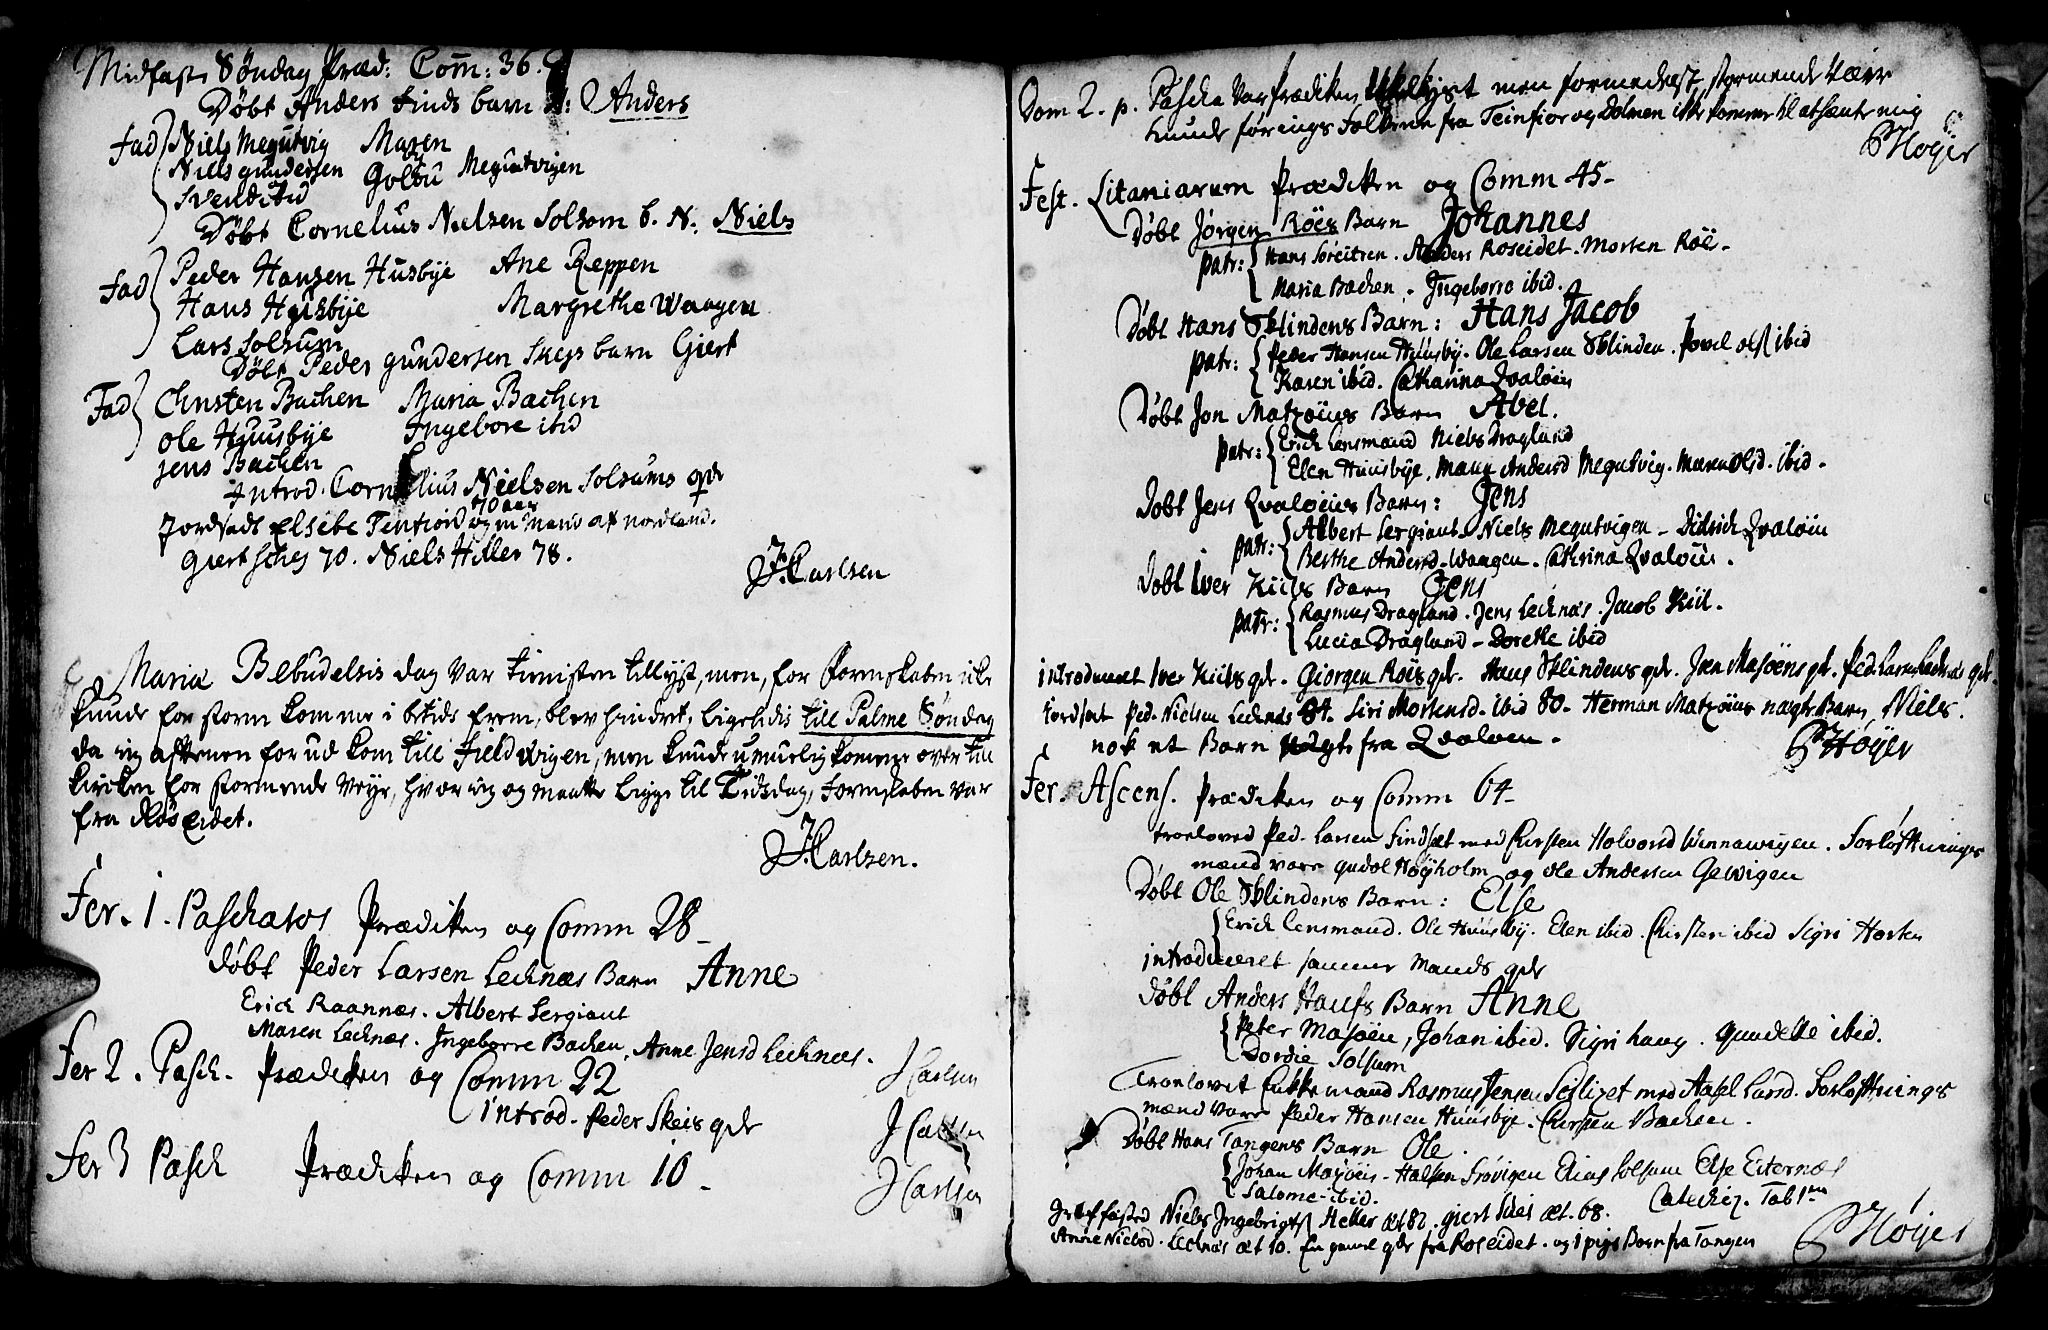 Midfaste Søndag Præd: Com̄: 36.
Døbt Anders Finds barn N: Anders
Fad Niels Megutvig Maren
Niels gundersen Golbu Megudtvigen
Svend ibid
Døbt Cornelius Nielsen Solsom b. N: Niels
Fad Peder Hansen Husbye Ane Reppen
Hans Husbye Margrethe Waagen
Lars Solsum
Døbt Peder gundersen Skejs barn Giert
Fad Christen Bachen Maria Bachen
Ole Huusbye Ingebore ibid
Jens Bachen
Introd. Cornelius Nielsen Solsums qdr
70 aar
Jordsadt Elsebe Tentiord og en Mand af nordland.
Giert Schej 70. Niels Hiller 78.
J. Carlsen
Mariæ Bebudelsis dag var tienisten tillyst, men, for skaben ikke
kunde for storm komme i betids frem, blev hindret, ligeledis till Palme Søndag
da jeg aftenen for ud kom till Field wigen, men kunde umuelig komme over till
kircken for stormende veyr, hvor jeg og maatte ligge til Tidsdag, skaben var
fra Røseidet.
J. Carlsen.
Fer. 1. Paschatos Prædiken og Comm 28
døbt Peder Larsen Lecknæs Barn Anne
Erich Raannæs. Albert Sergiant
Maren Lecknæs. Ingeborre Bachen, Anne Jensd Lecknæs.
J Carlsen
Fer 2. Pasch. Prædiken og Comm 22
introd. Peder Skeis qdr
J Carlsen
Fer 3 Pasch Prædiken og Comm 10
J Carlsen
Dom 2. p. Pascha var prædiken lyst men formedelst stormende væir
kunde førings folkene fra Teinfior og Dolmen ikke komme til at hente mig
PHøyer
Fest. Litaniarum Prædiken og Comm 45
Døbt Jørgen Røes Barn Johannes
patr: Hans Søreitsen. Anders Roseidet. Morten Röe
Maria Bachen. Ingeborre ibid.
Døbt Hans Sklindens Barn: Hans Jacob
patr: Peder Hansen Huusby. Ole Larsen Sklinden. Povel Ols ibid
Karen ibid. Catharina Qvaløen
Døbt Jon Matzöius Barn Abel.
patr: Erich Lensmand Niels Dragland
Elen Huusbye. Mann Andersd Megutvig. Maren Olsd. ibid.
Døbt Jens Qvaløens Barn: Jens
patr: Albert Sergiant. Niels Megutvigen Didrich Qvaløen
Berthe Andersd. Waagen. Cathrina Qvaløen.
Døbt Iver Kiils Barn Jens
patr: Rasmus Dragland. Jens Lecknæs. Jacob Kiil.
Lucia Dragland. Dorethe ibid
introduceret Iver Kiils qdr. Giorgen Röis qdr. Hans Sklindens qdr. Joen Masøens qd. Ped. Larss Lecknæs qdr.
Jordsat Ped. Nielsen Lecknæs 84. Siri Mortensd. ibid 80. Herman Matzöius Barn Niels.
nok et Barn fra Qvaløen.
PHøyer
Fer. Ascens. Prædiken og Comm 64
troelovet Ped. Larsen Findset med Kirsten Holvorsd Winnawigen. Forløftnings
mænd vare Gudol Høyholm og Ole Andersen Gewigen
Døbt Ole Sklindens Barn: Else
Erich Lensmand. Ole Huusby. Elen ibid. Kirsten ibid Sigri Horten
introduceret samme Mands qdr
døbt Anders Haufs Barn Anne
Peter Masøen, Johan ibid. Sigri haug. Gundelle ibid.
Dordie Solsum
Troelovet Enkemand Rasmus Jensen Seslizet med Axsel Larsd. Forløftnings
mænd vare Peder Hansen Huusbye. Christen Bachen.
Døbt Hans Tangens Barn Ole.
Johan Masøen. Halsten Frøvigen Elias Solsum Else Eiternæs
Salome ibid.
Catechiz. Tab 1ma
Jordfæsted Niels Ingebrigts Heller æt 82. giert Skei æt. 68.
Anne Nielsd. Lecknæs æt 10. En gamel qdr fra Roseidet. og 1 pige Barn fra Tangen
PHøyer